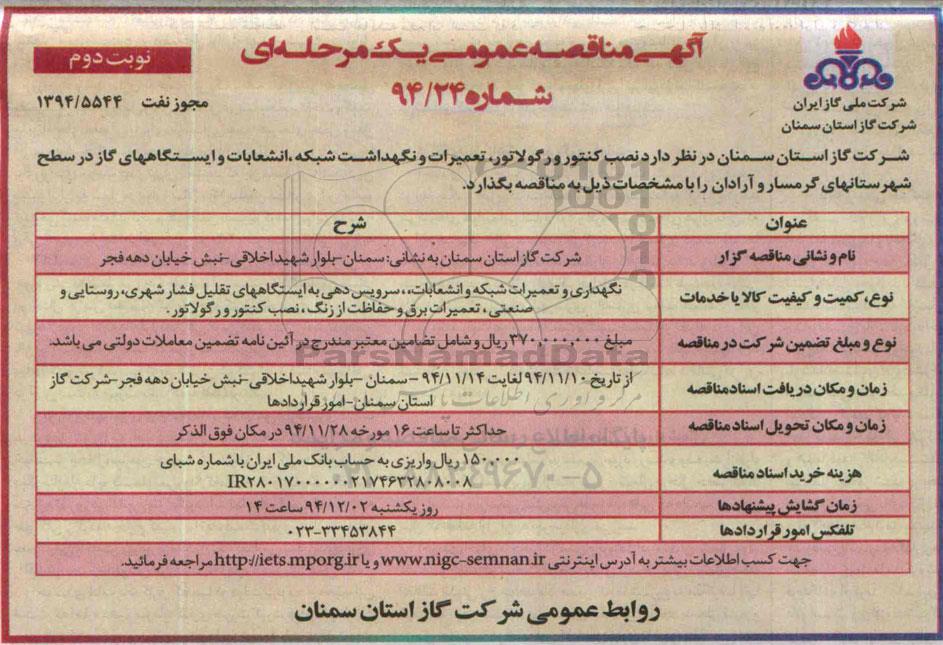 آگهی مناقصه عمومی یک مرحله‌ای
شماره ۹۴/۲۴
نوبت دوم
مجوز نفت ۱۳۹۴/۵۵۴۴
شرکت ملی گاز ایران
شرکت گاز استان سمنان
شرکت گاز استان سمنان در نظر دارد نصب کنتور و رگولاتور، تعمیرات و نگهداشت شبکه، انشعابات و ایستگاههای گاز در سطح
شهرستانهای گرمسار و آرادان را با مشخصات ذیل به مناقصه بگذارد.
عنوان شرح
نام و نشانی مناقصه گزار شرکت گاز استان سمنان به نشانی: سمنان-بلوار شهید اخلاقی-نبش خیابان دهه فجر
نوع، کمیت و کیفیت کالا یا خدمات نگهداری و تعمیرات شبکه و انشعابات، سرویس دهی به ایستگاههای تقلیل فشار شهری، روستایی و
صنعتی، تعمیرات برق و حفاظت از زنگ، نصب کنتور و رگولاتور.
نوع و مبلغ تضمین شرکت در مناقصه مبلغ ۳۷۰,۰۰۰,۰۰۰ ریال و شامل تضامین معتبر مندرج در آئین نامه تضمین معاملات دولتی می باشد.
زمان و مکان دریافت اسناد مناقصه از تاریخ ۹۴/۱۱/۱۰ لغایت ۹۴/۱۱/۱۴ - سمنان -بلوار شهید اخلاقی-نبش خیابان دهه فجر-شرکت گاز
استان سمنان-امور قراردادها
زمان و مکان تحویل اسناد مناقصه حداکثر تا ساعت ۱۶ مورخه ۹۴/۱۱/۲۸ در مکان فوق الذکر
هزینه خرید اسناد مناقصه ۱۵۰,۰۰۰ ریال واریزی به حساب بانک ملی ایران با شماره شبای
IR۲۸۰۱۷۰۰۰۰۰۰۲۱۷۴۶۳۲۸۰۸۰۰۸
زمان گشایش پیشنهادها روز یکشنبه ۹۴/۱۲/۰۲ ساعت ۱۴
تلفکس امور قراردادها ۰۲۳-۳۳۴۵۳۸۴۴
جهت کسب اطلاعات بیشتر به آدرس اینترنتی www.nigc-semnan.ir و یا http://iets.mporg.ir مراجعه فرمائید.
روابط عمومی شرکت گاز استان سمنان
ParsNamadData